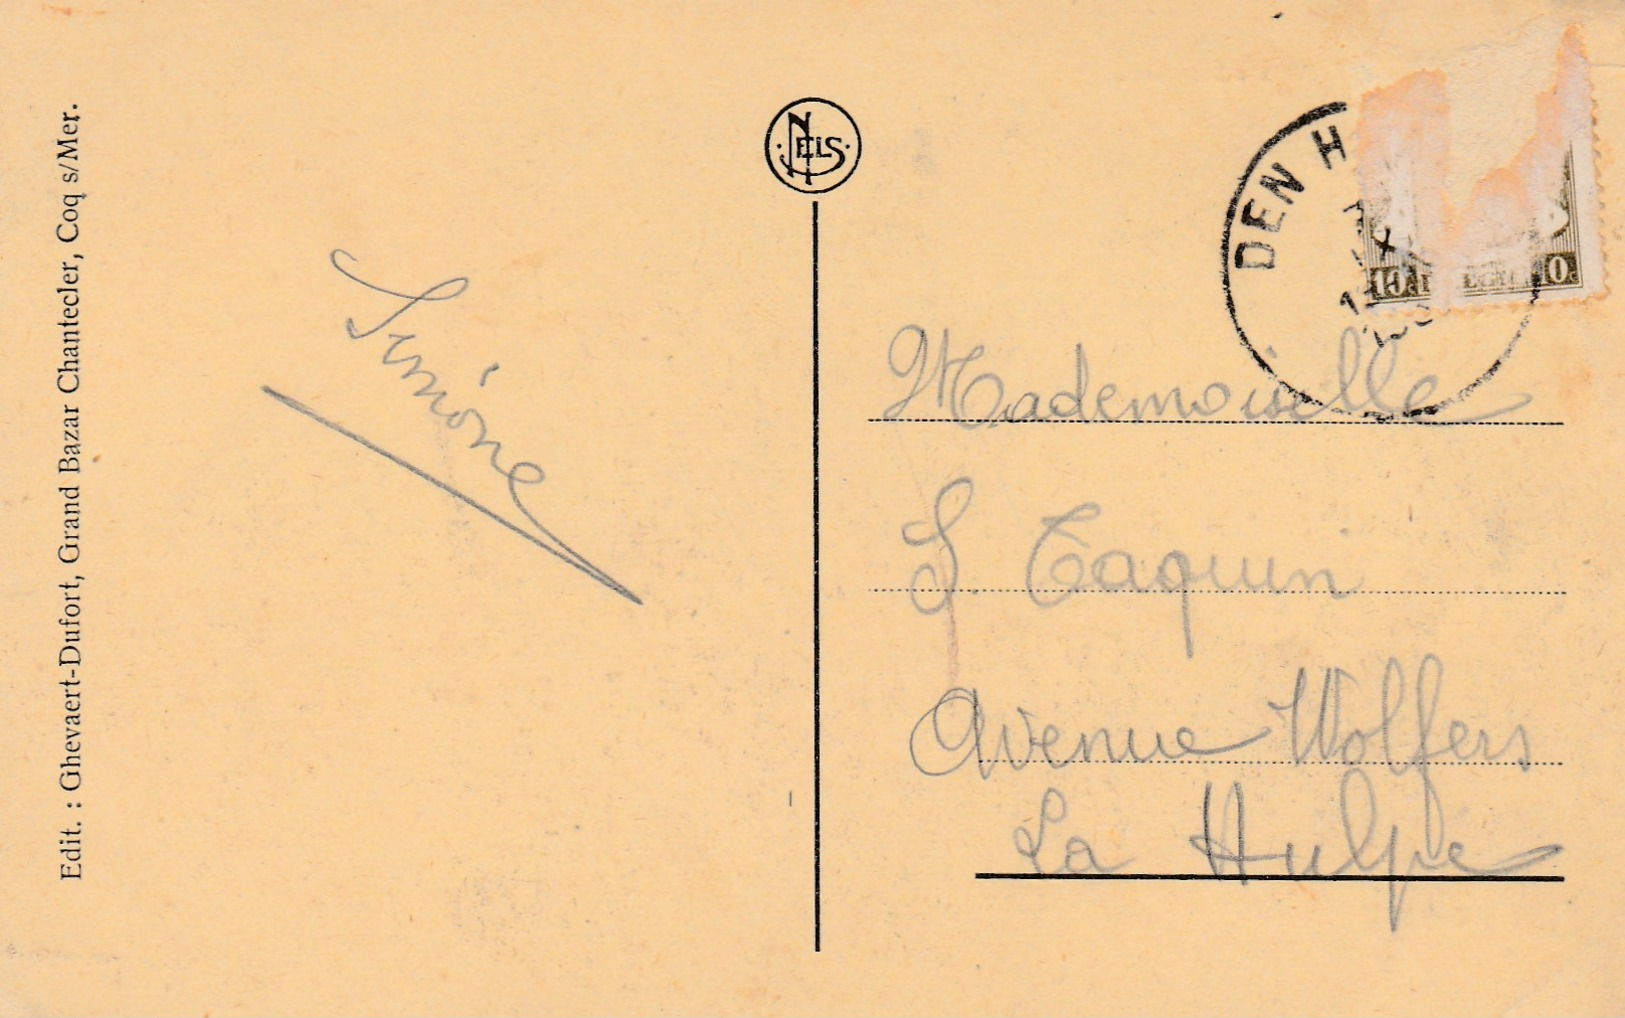 Edit. : Ghevaert-Dufort, Grand Bazar Chantecler, Coq s/Mer.
NELS
Simone
DEN H
10c
0c
Mademoiselle
S. Taquin
Avenue Wolfers
La Hulpe